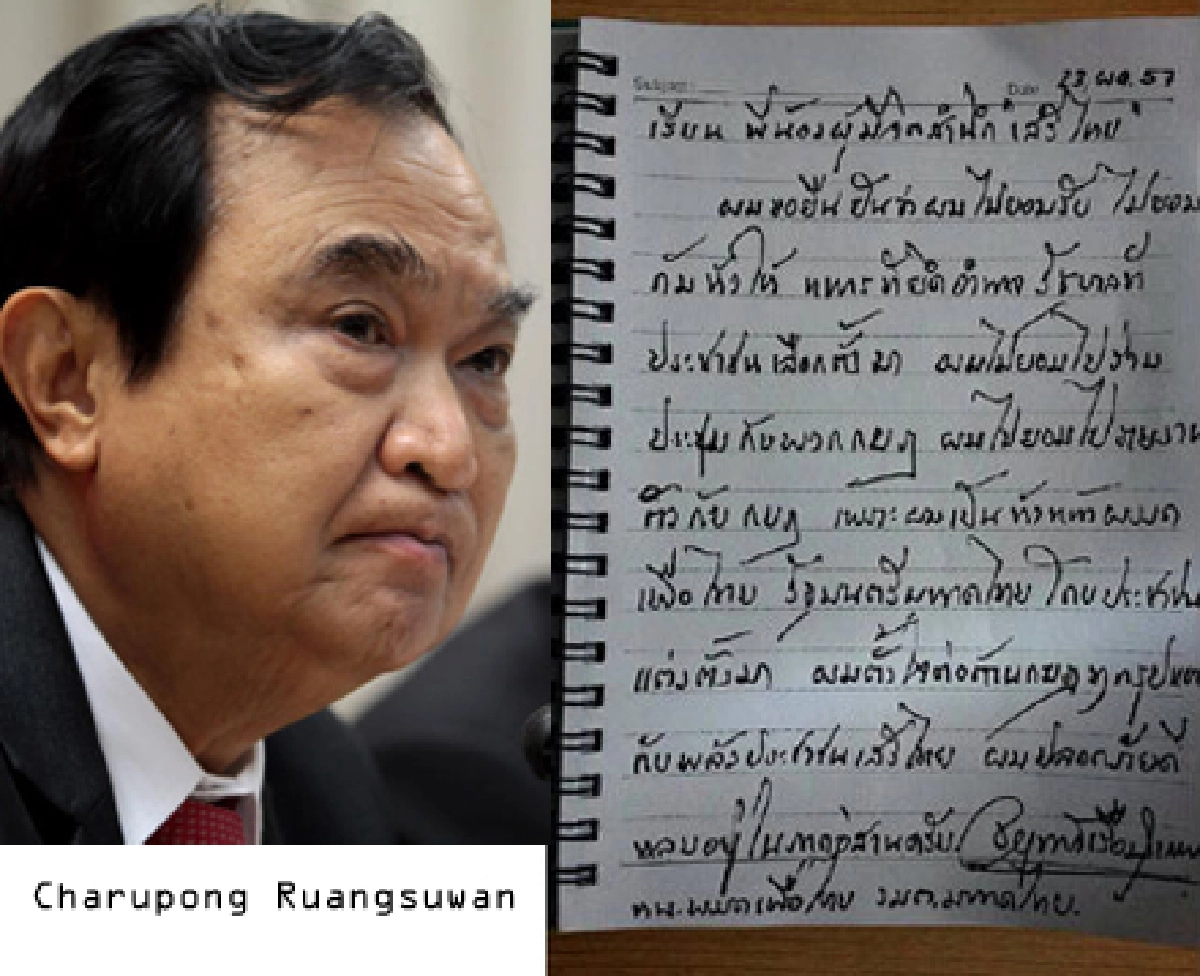 Charupong Ruangsuwan
Subject: Date 23 พ.ค. 57
เรียน พี่น้องผู้มีจิตสำนึก "เสรีไทย"
ผมขอยืนยันว่าผมไม่ยอมรับ ไม่ยอม
ก้มหัวให้ ทหารที่ยึดอำนาจ รัฐบาลที่
ประชาชนเลือกตั้งมา ผมไม่ยอมไปร่วม
ประชุมกับพวกกบฏ ผมไม่ยอมไปรายงาน
ตัวกับกบฏ เพราะผมเป็นหัวหน้าพรรค
เพื่อไทย รัฐมนตรีมหาดไทย โดยประชาชน
แต่งตั้งมา ผมตั้งใจต่อต้านกบฏทุกรูปแบบ
กับพลังประชาชนเสรีไทย ผมปลอดภัยดี
หลบอยู่ในภาคอีสานครับ
หน.พรรคเพื่อไทย รมต.มหาดไทย.